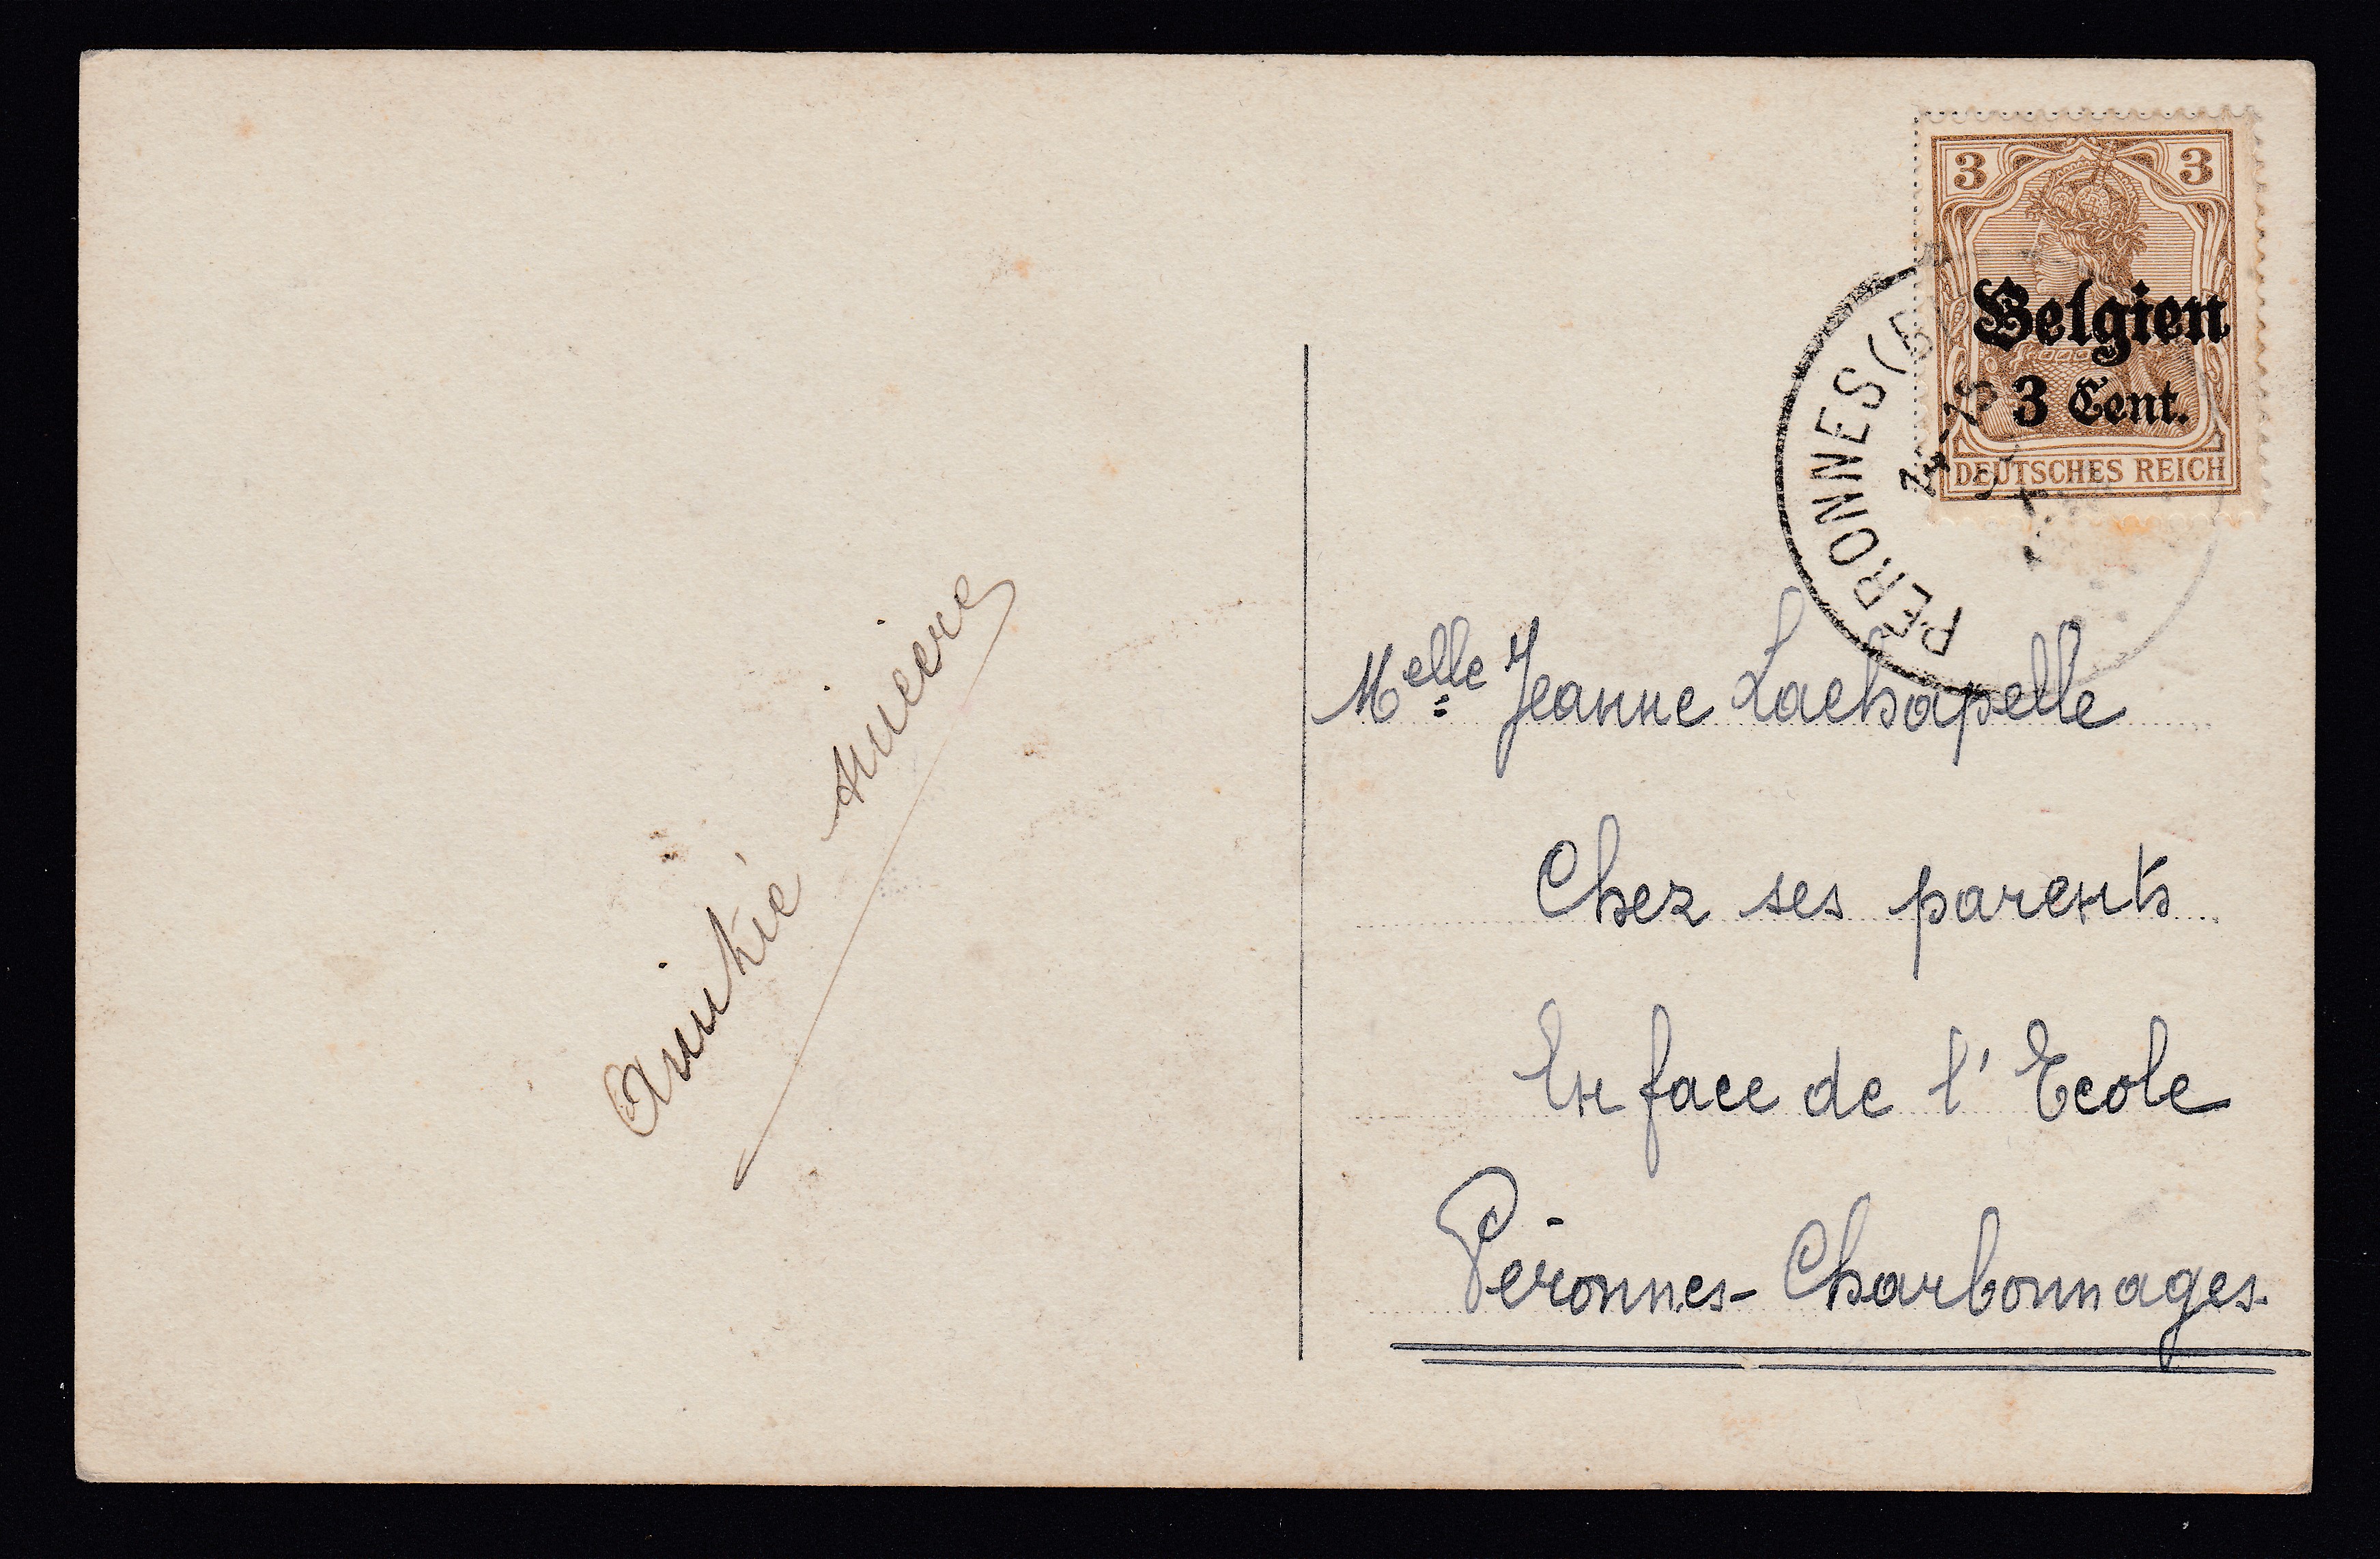 3 3
Belgien
3 Cent.
DEUTSCHES REICH
PERONNES (B
Amitié sincère
Melle Jeanne Lachapelle
Chez ses parents
En face de l'Ecole
Péronnes-Charbonnages.